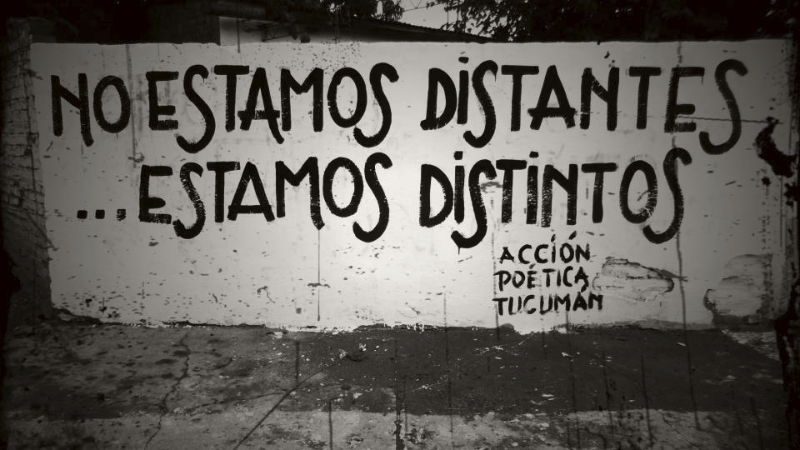 NO ESTAMOS DISTANTES
...ESTAMOS DISTINTOS
ACCIÓN
POÉTICA
TUCUMÁN